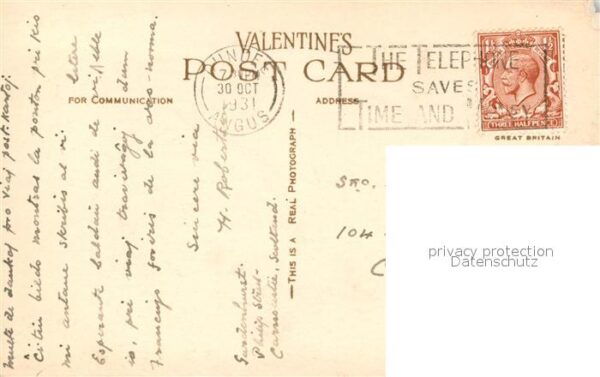 VALENTINE'S
POST CARD
FOR COMMUNICATION
ADDRESS
30 OCT
1931
ANGUS
THE TELEPHONE
SAVES
TIME AND
THREE HALFPENCE
GREAT BRITAIN
THIS IS A REAL PHOTOGRAPH
multe da dankoj pro viaj post-kartoj.
Ĉi tiu bildo montras la ponton pri kiu
mi antaue skribis al vi letere
Esperante baldaŭ audi de vi, kaj
pri viaj travivaĵoj dum
de la
Sincere via
H. Roberts
Gardenhurst.
Philip Street.
Carnoustie, Scotland.
Sro.
104
C
privacy protection
Datenschutz